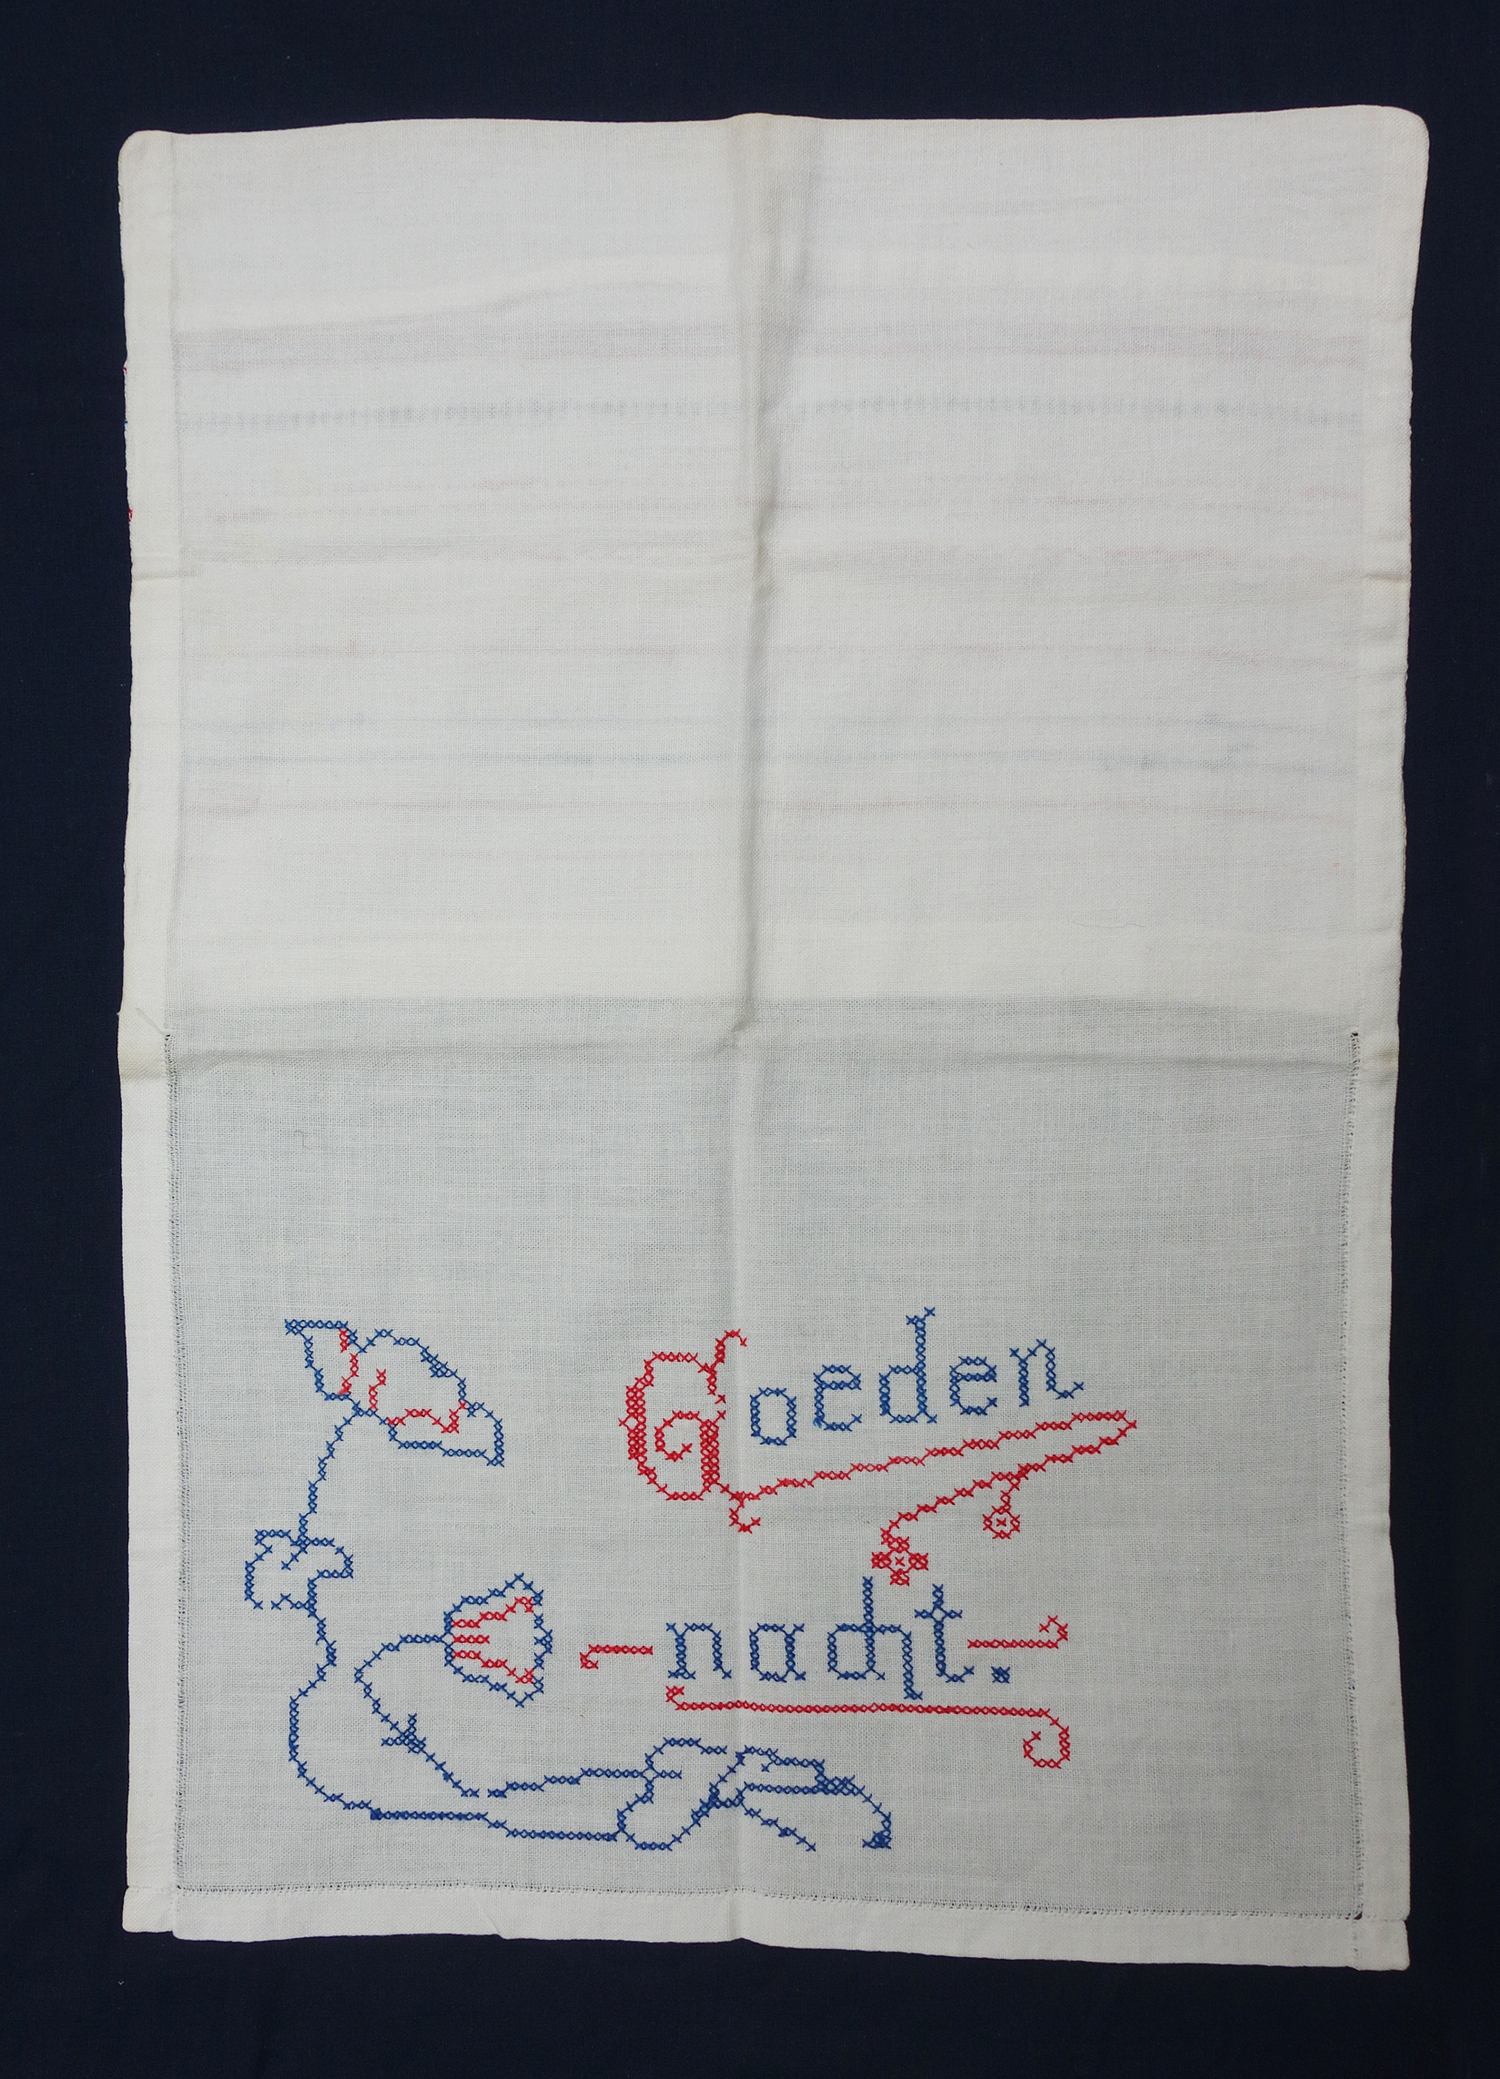 Goeden
nacht.